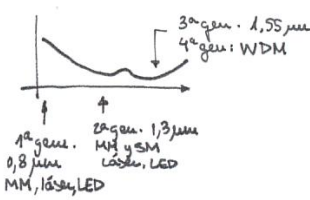 3ª gen. 1,55 μm
4ª gen: WDM
1ª gen.
0,8 μm
MM, láser, LED
2ª gen. 1,3 μm
MM y SM
Láser, LED